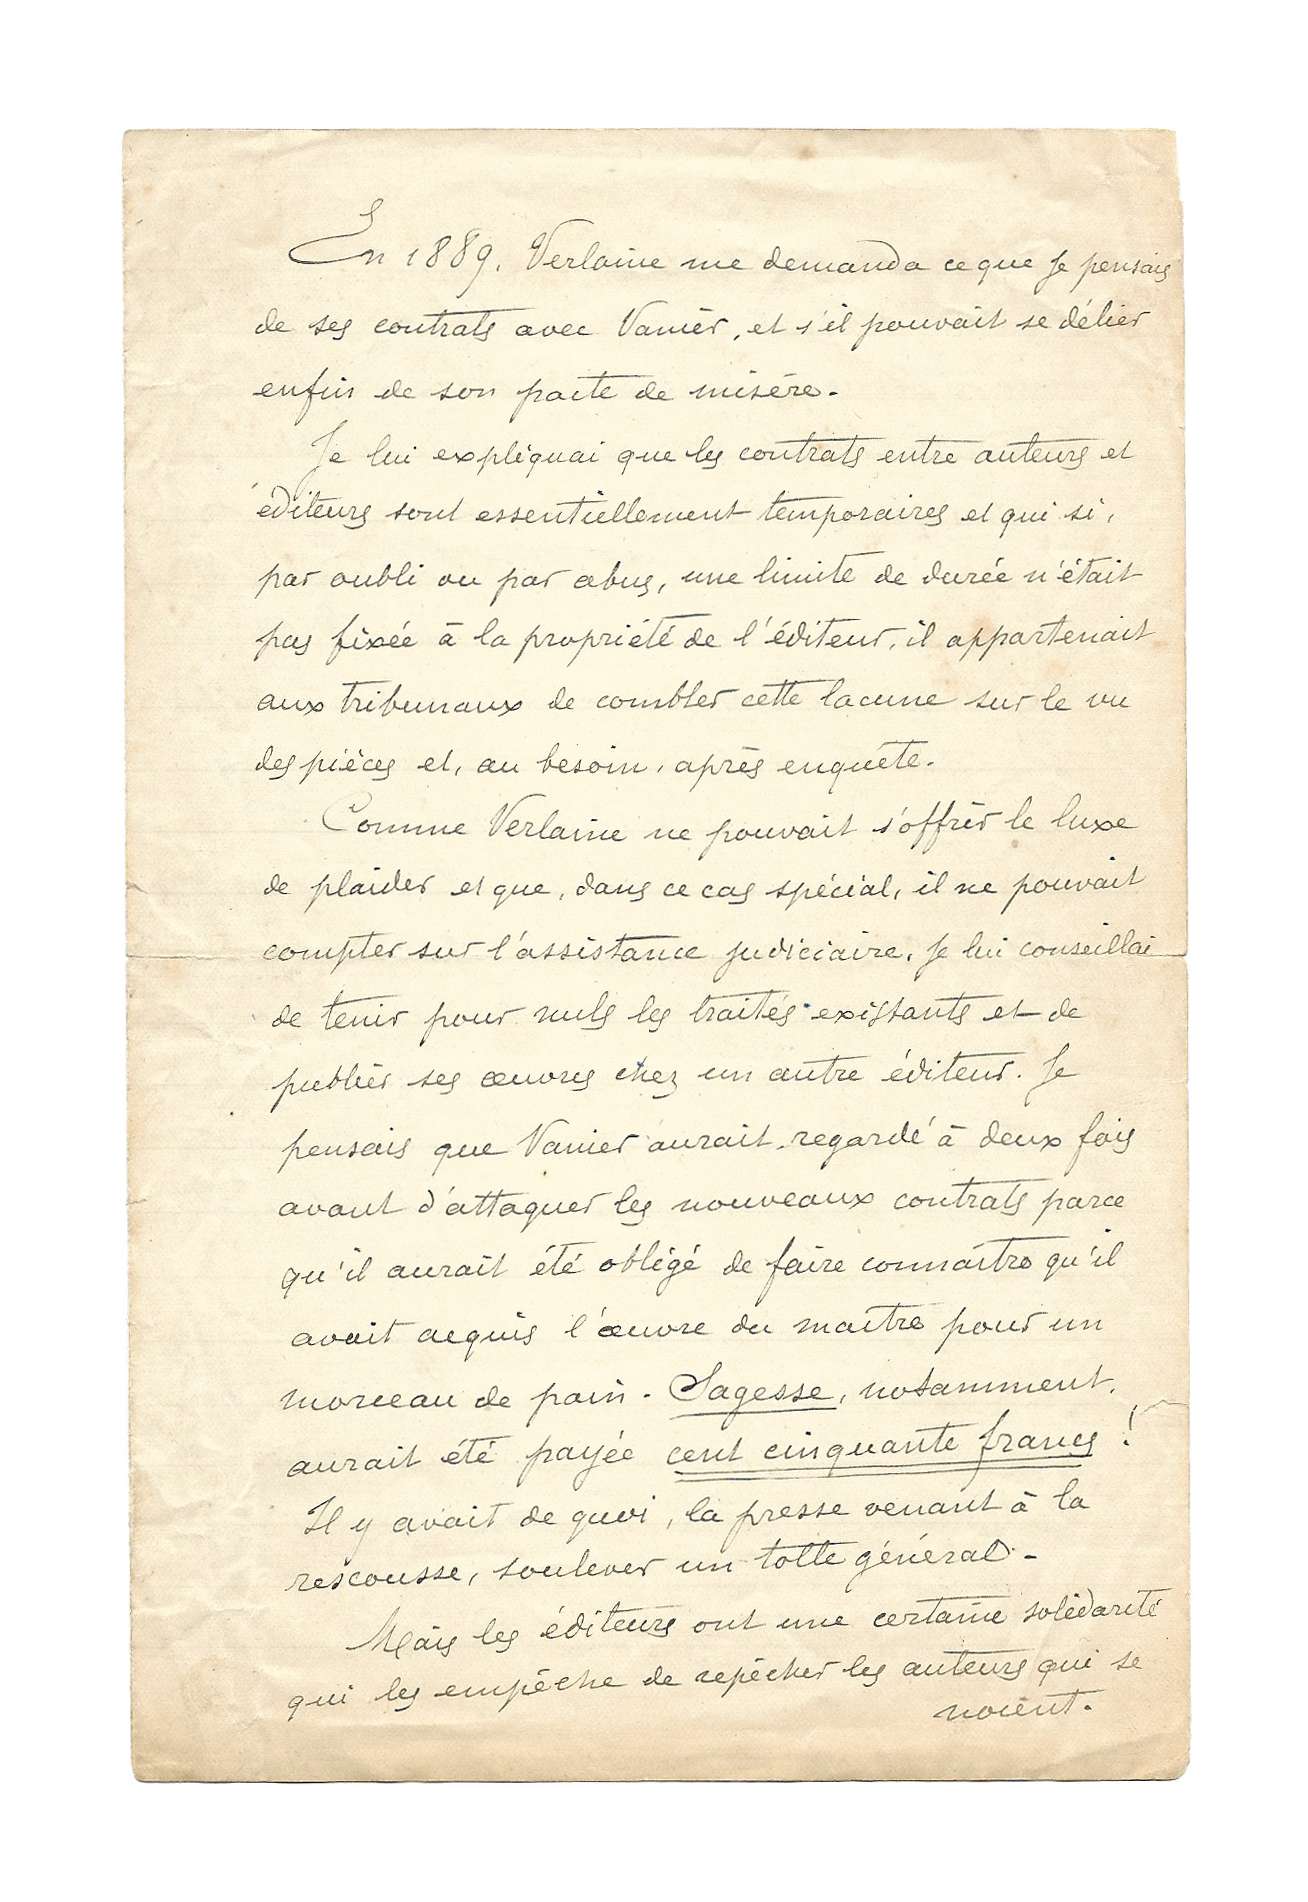 En 1889, Verlaine me demanda ce que je pensais
de ses contrats avec Vanier, et s'il pouvait se délier
enfin de son pacte de misère.
Je lui expliquai que les contrats entre auteurs et
éditeurs sont essentiellement temporaires et qui si,
par oubli ou par abus, une limite de durée n'était
pas fixée à la propriété de l'éditeur, il appartenait
aux tribunaux de combler cette lacune sur le vu
des pièces et, au besoin, après enquête.
Comme Verlaine ne pouvait s'offrir le luxe
de plaider et que, dans ce cas spécial, il ne pouvait
compter sur l'assistance judiciaire, je lui conseillai
de tenir pour nuls les traités existants et de
publier ses œuvres chez un autre éditeur. Je
pensais que Vanier aurait regardé à deux fois
avant d'attaquer les nouveaux contrats parce
qu'il aurait été obligé de faire connaître qu'il
avait acquis l'œuvre du maître pour un
morceau de pain. Sagesse, notamment,
aurait été payée cent cinquante francs !
Il y avait de quoi, la presse venant à la
rescousse, soulever un tolle général.
Mais les éditeurs ont une certaine solidarité
qui les empêche de repêcher les auteurs qui se
noient.